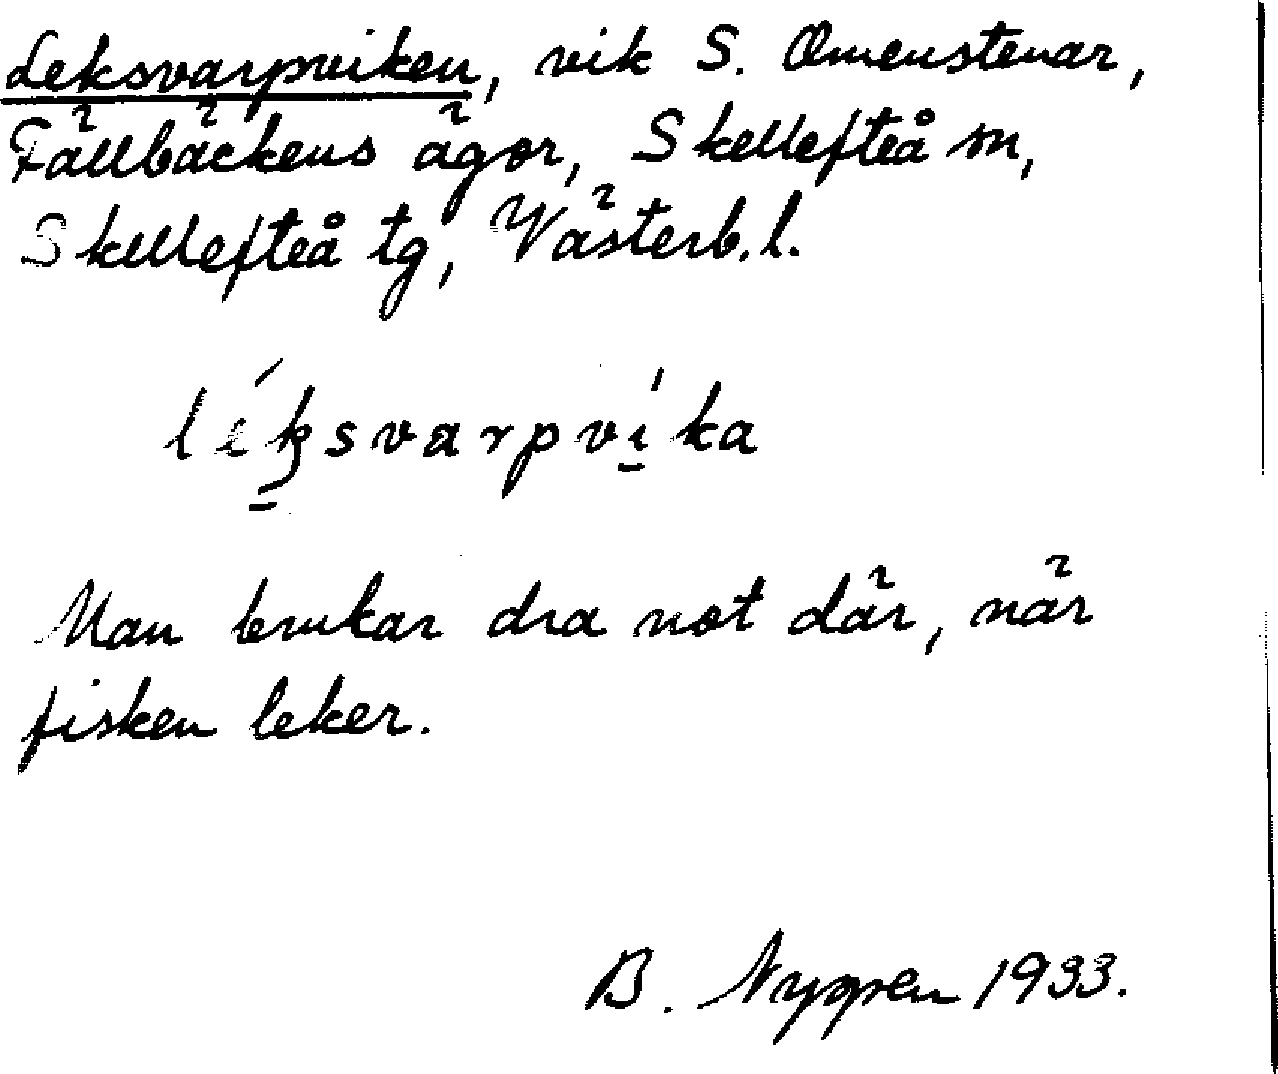 Leksvarpviken, vik S. Omenstenar,
Fällbäckens ägor, Skellefteå sn,
Skellefteå tg, Västerb. l.
léksvarpvíka
Man brukar dra not där, när
fisken leker.
B. Nygren 1933.